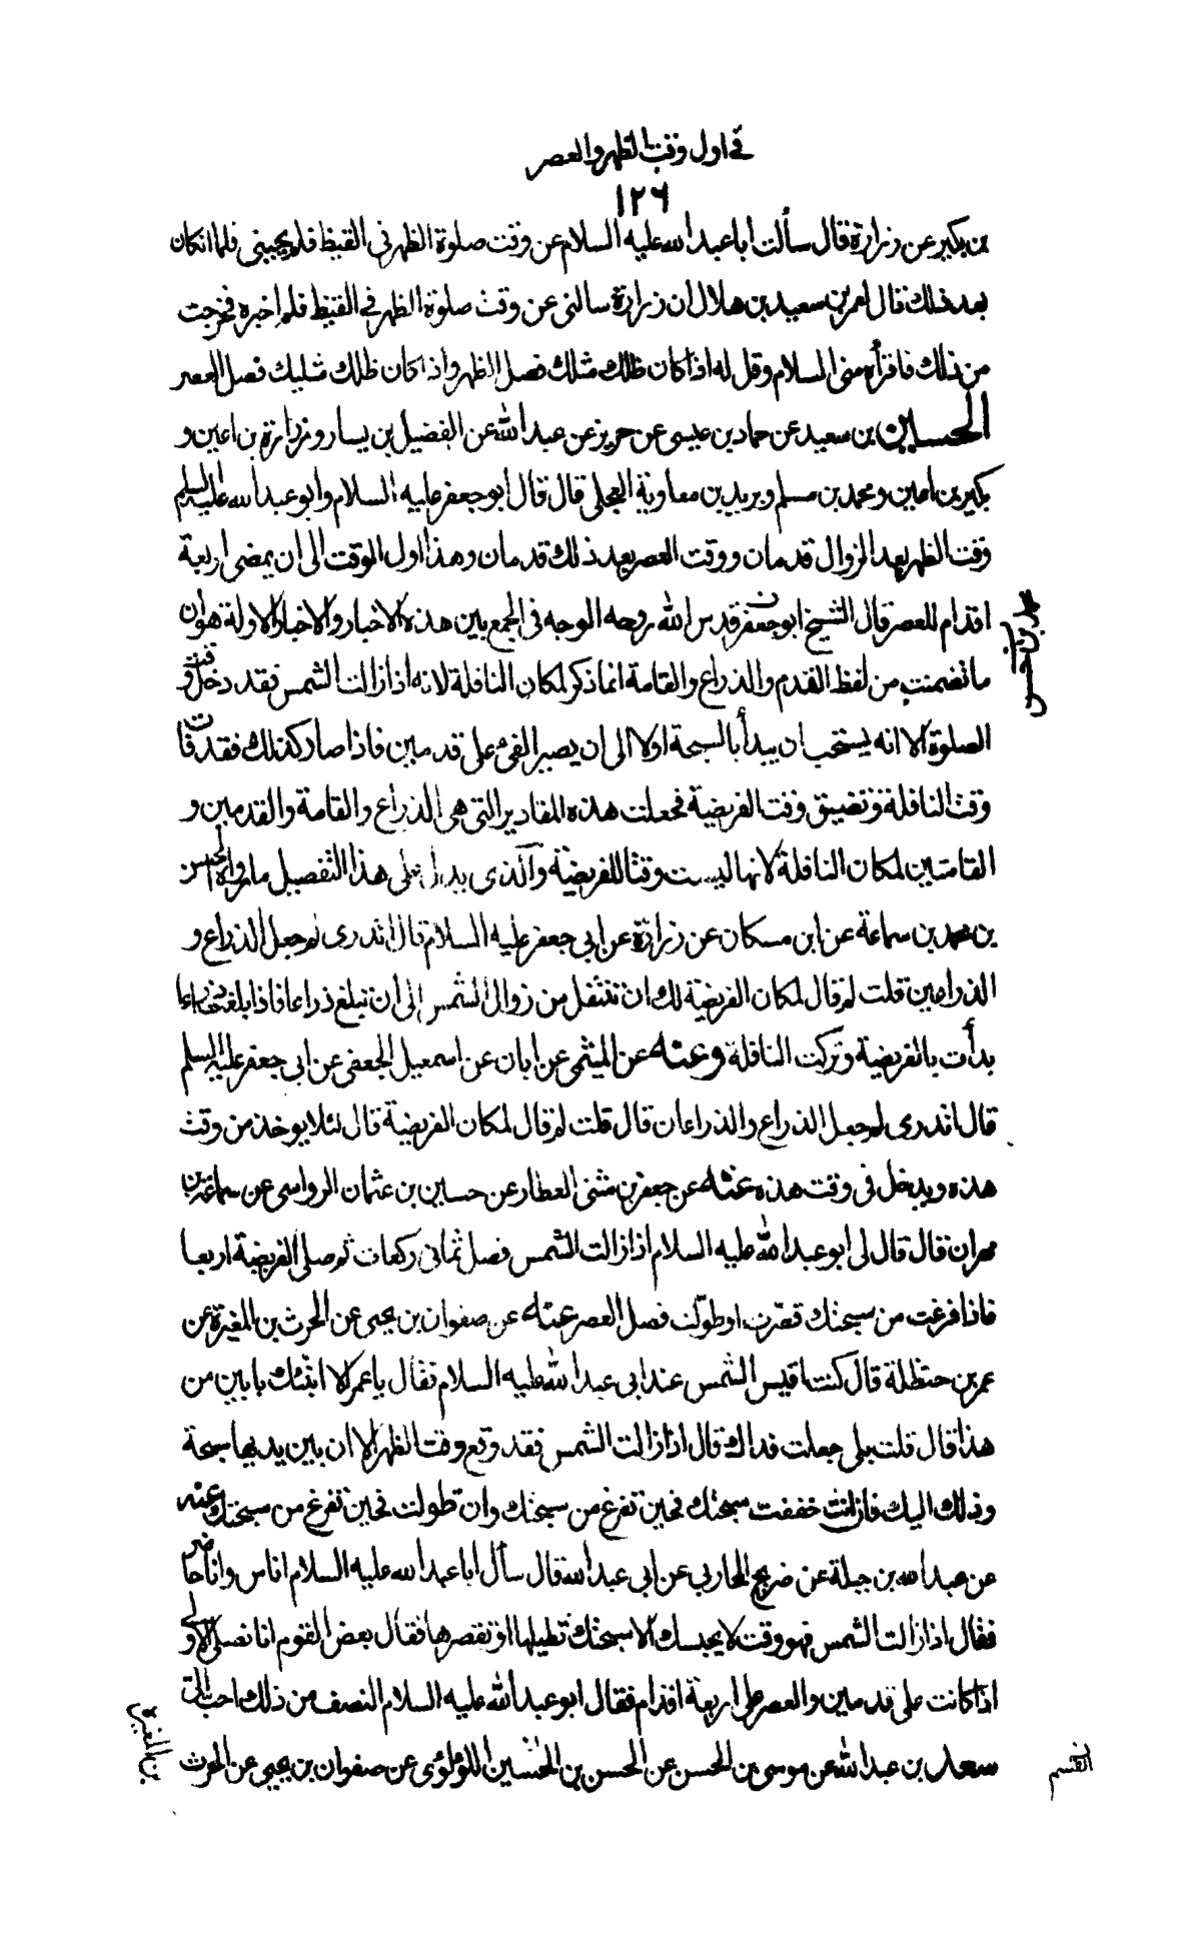 في اول وقت الظهر والعصر
١٢٦
بن بكير عن زرارة قال سألت ابا عبد الله عليه السلام عن وقت صلوة الظهر في القيظ فلم يجبنى فلما انكان
بعد ذلك قال لعمر بن سعيد بن هلال ان زرارة سالنى عن وقت صلوة الظهر في القيظ فلم اخبره فخرجت
من ذلك فاقرأه منى السلام وقل له اذا كان ظلك مثلك فصل الظهر واذا كان ظلك مثليك فصل العصر
الحسين بن سعيد عن حماد بن عيسى عن حريز عن عبد الله عن الفضيل بن يسار وزرارة بن اعين و
بكير بن اعين ومحمد بن مسلم وبريد بن معاوية العجلى قال قال ابو جعفر عليه السلام وابو عبد الله عليه السلم
وقت الظهر بعد الزوال قدمان ووقت العصر بعد ذلك قدمان وهذا اول الوقت الى ان يمضى اربعة
اقدام للعصر قال الشيخ ابو جعفر قدس الله روحه الوجه في الجمع بين هذه الاخبار والاخبار الاولة هو ان
ما تضمنت من لفظ القدم والذراع والقامة انما ذكر لمكان النافلة لانه اذا زالت الشمس فقد دخل وقت
الصلوة الا انه يستحب ان يبدأ بالسبحة اولا الى ان يصير الفئ على قدمين فاذا صار كذلك فقد فات
وقت النافلة وتضيق وقت الفريضة فجعلت هذه المقادير التى هى الذراع والقامة والقدمين و
القامتين لمكان النافلة لانها ليست وقتا للفريضة والذى يدل على هذا التفصيل ما رواه الحسن
بن محمد بن سماعة عن ابن مسكان عن زرارة عن ابى جعفر عليه السلام قال اتدرى لم جعل الذراع و
الذراعين قلت لم قال لمكان الفريضة لك ان تتنفل من زوال الشمس الى ان تبلغ ذراعا فاذا بلغت ذراعا
بدأت بالفريضة وتركت النافلة وعنه عن الميثمى عن ابان عن اسمعيل الجعفى عن ابى جعفر عليه السلم
قال اتدرى لم جعل الذراع والذراعان قال قلت لم قال لمكان الفريضة قال لئلا يوخذ من وقت
هذه ويدخل في وقت هذه عنه عن جعفر بن مثنى العطار عن حسين بن عثمان الرواسى عن سماعة بن
مهران قال قال لى ابو عبد الله عليه السلام اذا زالت الشمس فصل ثمانى ركعات ثم صلى الفريضة اربعا
فاذا فرغت من سبحتك قصرت او طولت فصل العصر عنه عن صفوان بن يحيى عن الحرث بن المغيرة عن
عمر بن حنظلة قال كنت اقيس الشمس عند ابى عبد الله عليه السلام فقال يا عمر الا انبئك بابين من
هذا قال قلت بلى جعلت فداك قال اذا زالت الشمس فقد وقع وقت الظهر الا ان بين يديها سبحة
وذلك اليك فان انت خففت سبحتك فحين تفرغ من سبحتك وان طولت فحين تفرغ من سبحتك عنه
عن عبد الله بن جبلة عن ذريح المحاربى عن ابى عبد الله قال سأل ابا عبد الله عليه السلام اناس وانا حاضر
فقال اذا زالت الشمس فهو وقت لا يحبسك الا سبحتك تطيلها او تقصرها فقال بعض القوم انا نصلى الاولى
اذا كانت على قدمين والعصر على اربعة اقدام فقال ابو عبد الله عليه السلام النصف من ذلك احب الى
سعد بن عبد الله عن موسى بن الحسن عن الحسن بن الحسين اللؤلؤى عن صفوان بن يحيى عن الحرث
بن المغيرة